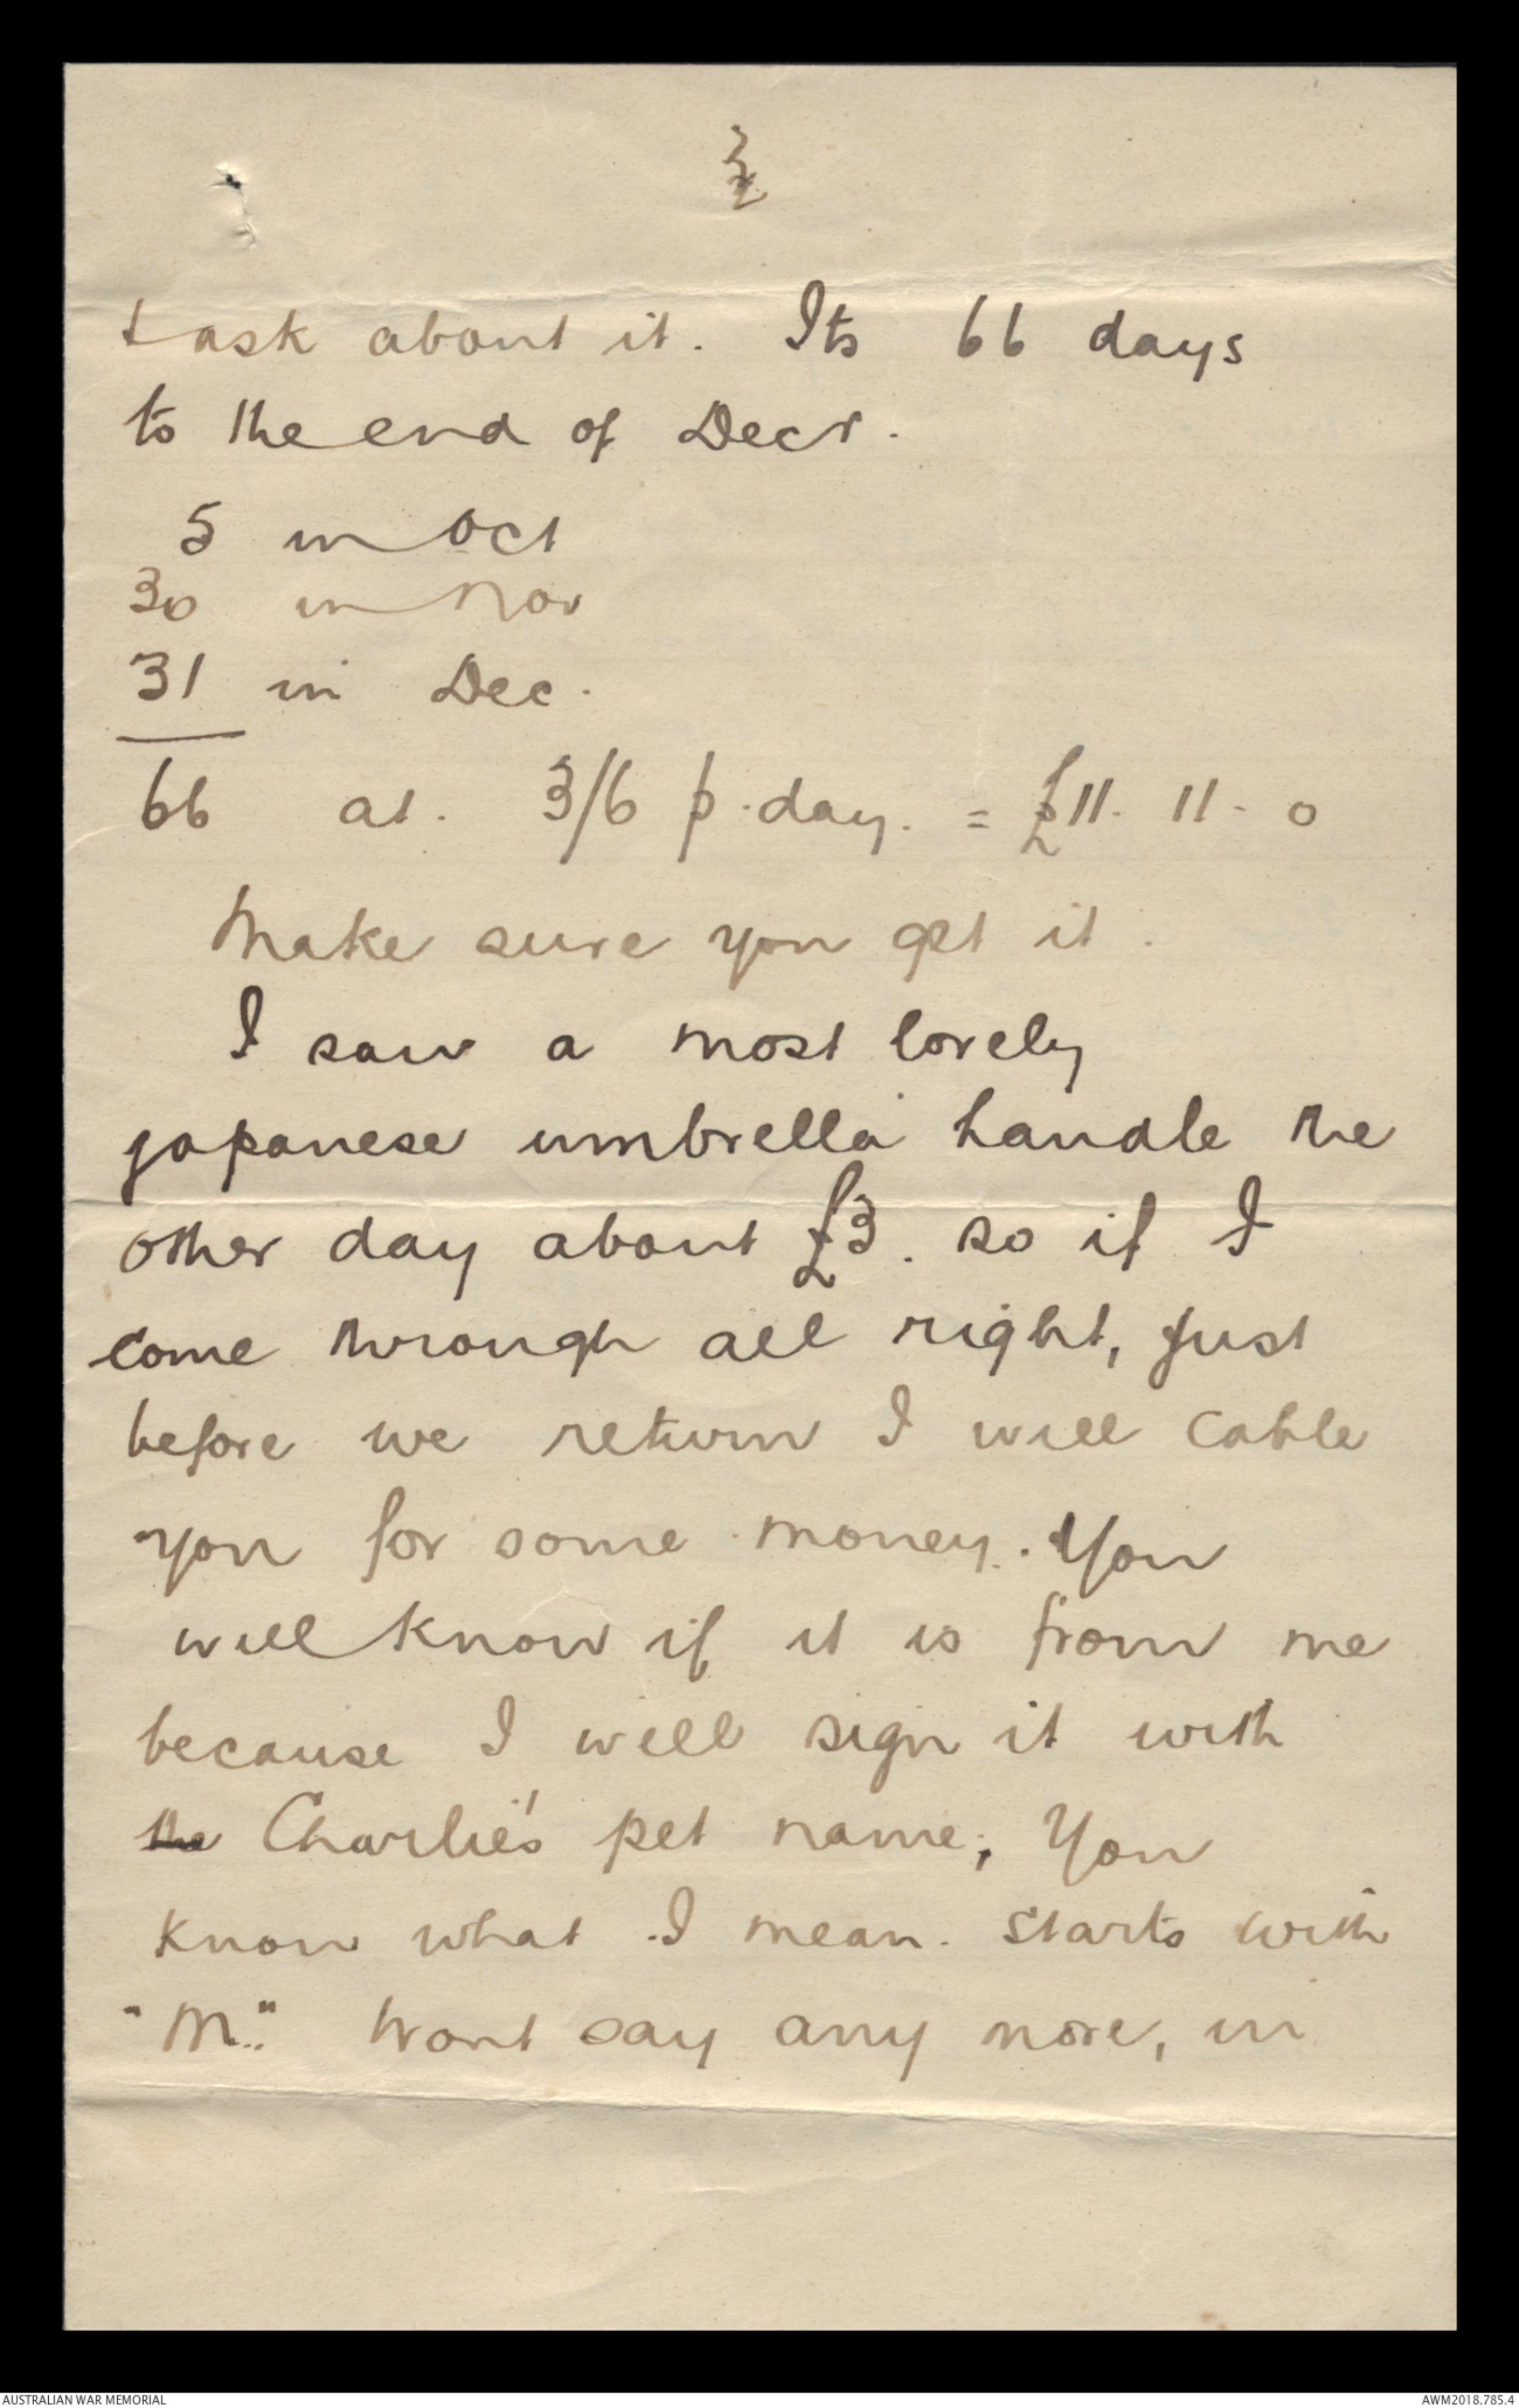 & ask about it. Its 66 days
to the end of Decr.
5 in Oct
30 in Nov
31 in Dec.
66 at. 3/6 p. day. = £11. 11. 0
Make sure you get it.
I saw a most lovely
japanese umbrella handle the
other day about £3. so if I
come through all right, just
before we return I will cable
you for some money. You
will know if it is from me
because I will sign it with
the Charlie's pet name; You
know what I mean. Starts with
"M." Wont say any more, in
AUSTRALIAN WAR MEMORIAL
AWM2018.785.4